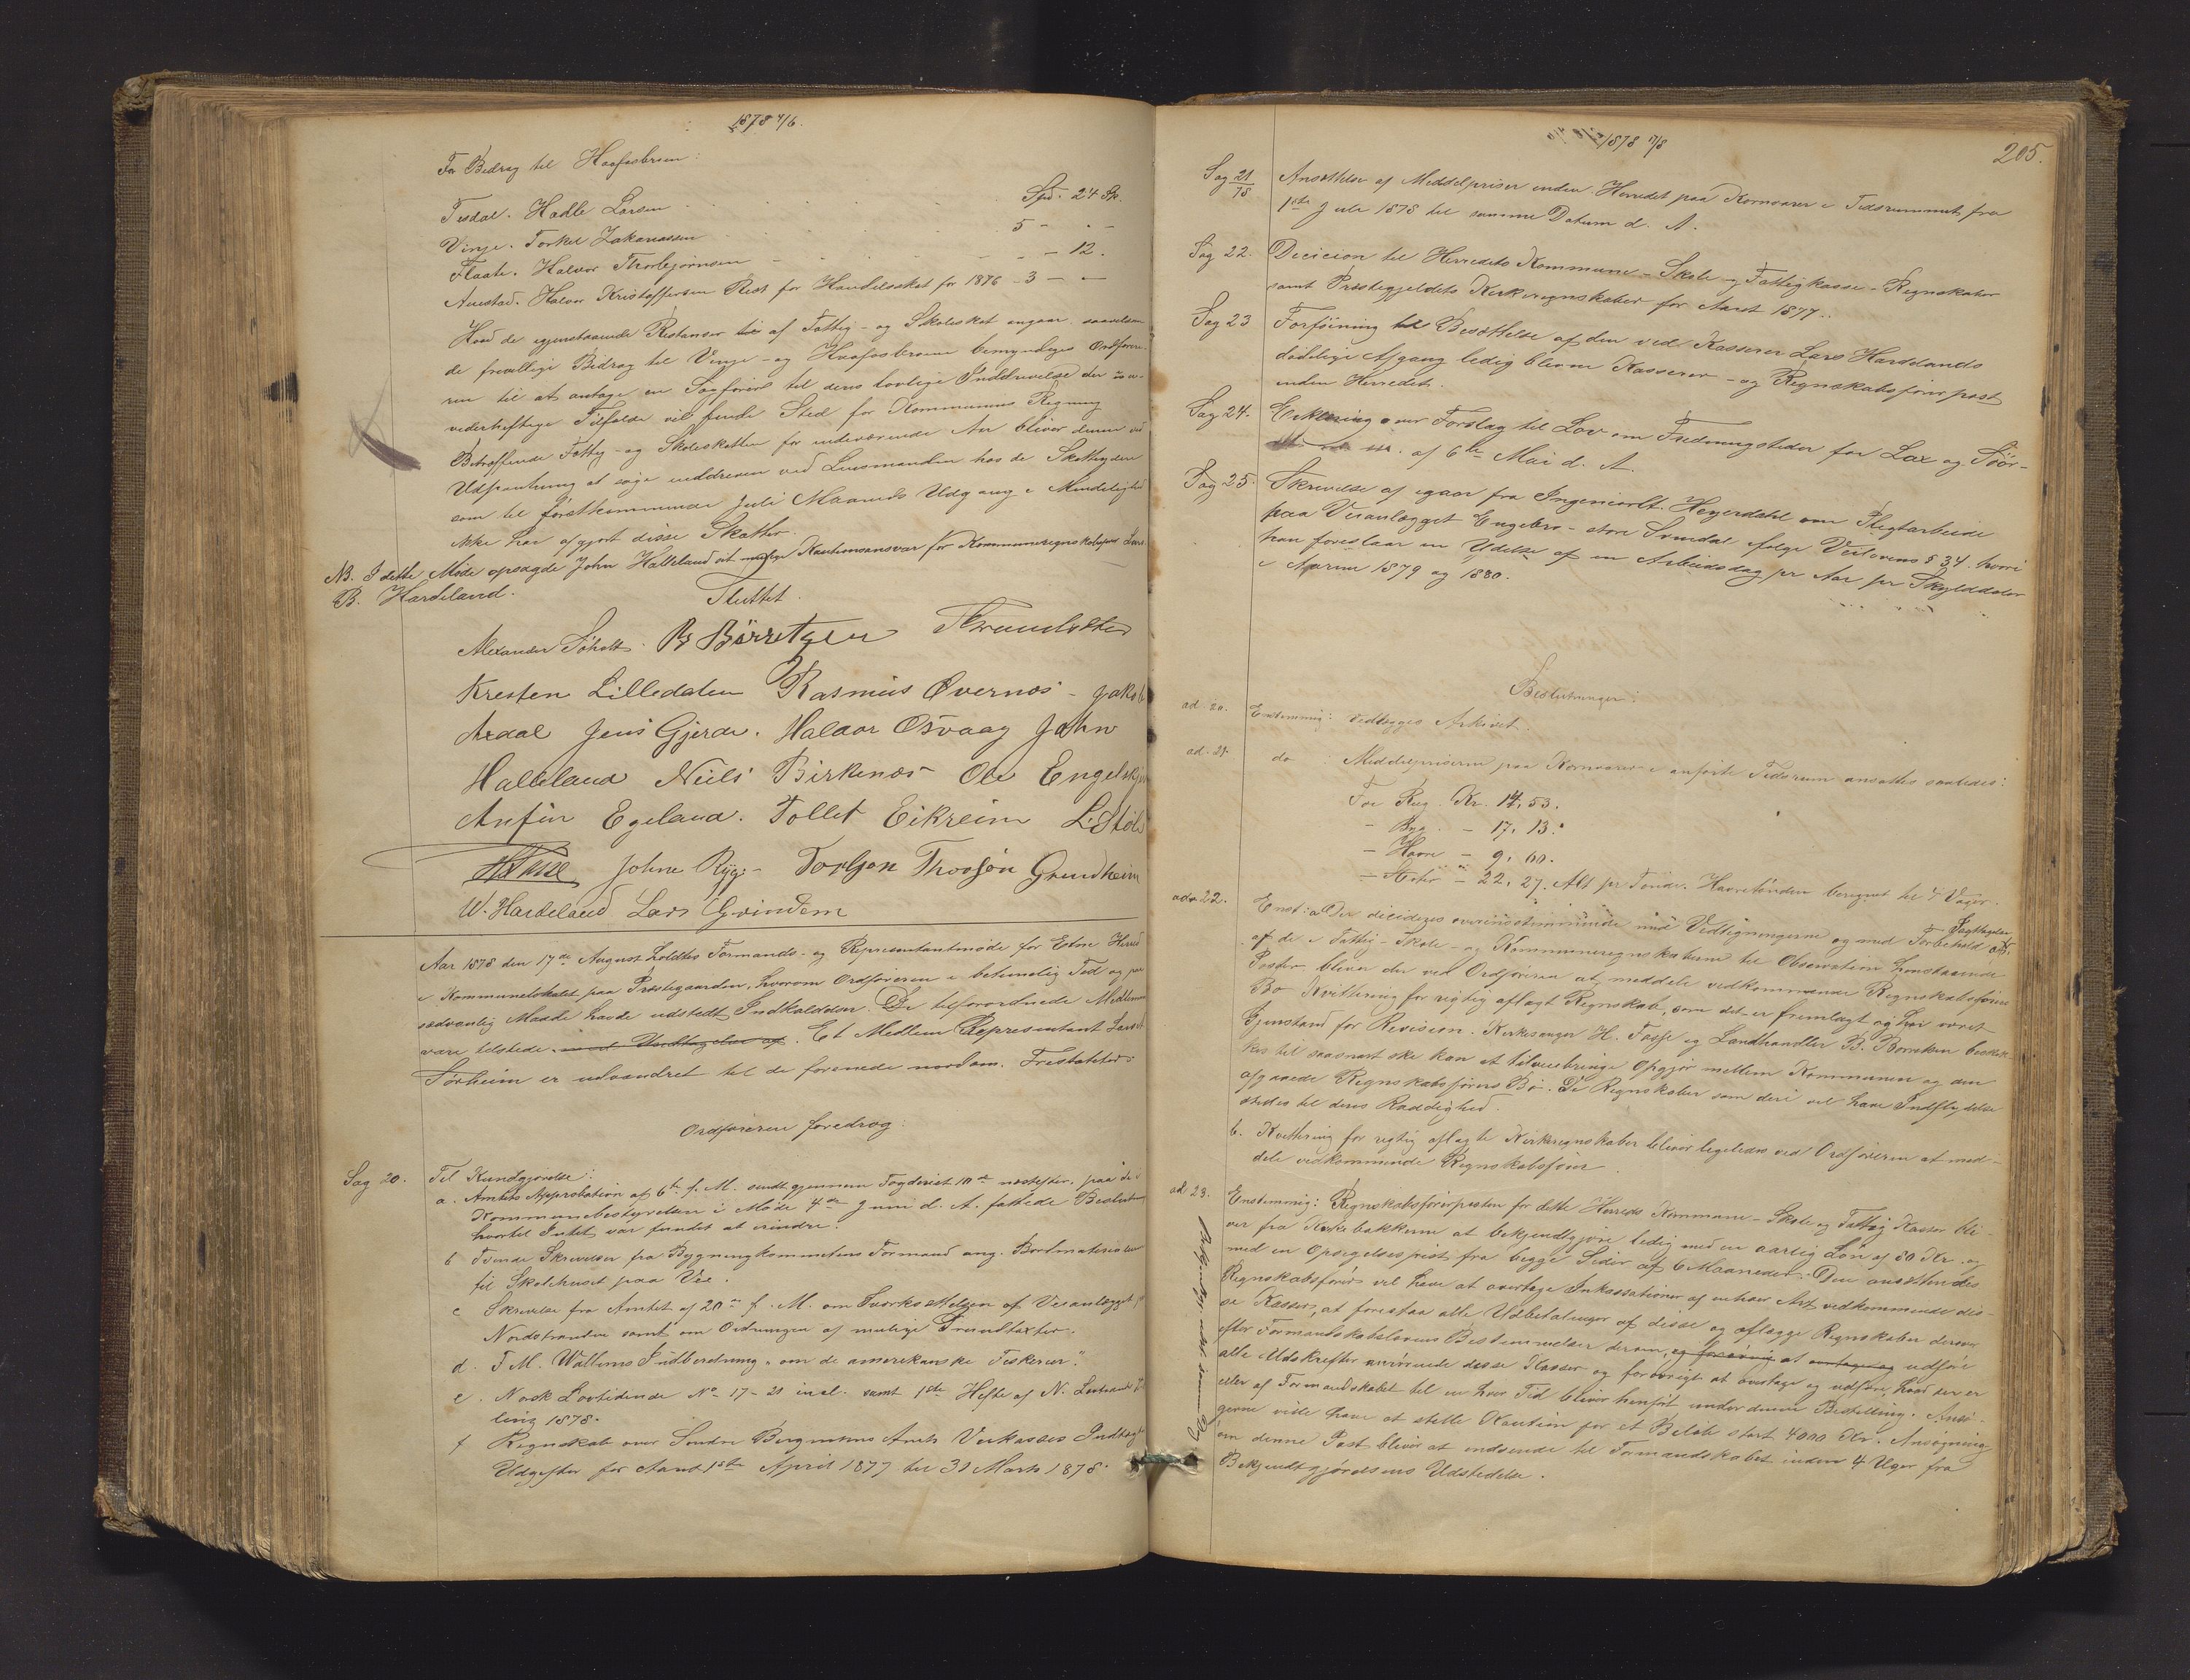 1878 4/6.
For Bidrag til Haafosbroen:
Tesdal. Hadle Larsen Spd. 24 Sk.
Vinje. Torkel Zakariassen 5 - -
Flaate. Halvor Thorbjørnsen - - 12.
Austad. Halvor Kristoffersen Rest for Handelsskat for 1876 - 3 - -
Hvad de igjenstaaende Restancer af Fattig- og Skoleskat angaar saavelsom
de frivillige Bidrag til Vinje- og Haafosbroerne bemyndiges Ordføre-
ren til at antage en Sagfører til deres lovlige Inddrivelse der i u-
vederheftige Tilfælde vil finde Sted for Kommunens Regning
Betræffende Fattig- og Skoleskatten for indeværende Aar bliver denne ved
Udpantning at søge inddreven ved Lensmanden hos de Skatteydere
som til førstkommende Juli Maaneds Udgang i Mindelighed
ikke har afgjort disse Skatter.
NB. I dette Møde opsagde John Halleland sit Kautionsansvar for Kommuneregnskabsfører Lars
B. Hardeland.
Sluttet.
Alexander Søholt. Børretzen
Kresten Lilledalen Rasmus Øvernæs - Jakob
Ardal Jens Gjerde. Halvor Osvaag John
Halleland Niels Birkenæs Ole Engelskjøn
Anfin Egeland. Tollef Eikreim L. Støle
Johne Ryg - Torbjøn Thorsøn Grindheim
W. Hardeland Lars Grindem
Aar 1878 den 17de August holdtes Formands- og Representantmøde for Etne Herred
i Kommunelokalet paa Præstegaarden, hvorom Ordføreren i betimelig Tid og paa
sædvanlig Maade havde udstedt Indkaldelse. De tilforordnede Medlemmer
vare tilstede med Undtagelse af. Et Medlem Representant Lars
Sørheim er udvandret til de forenede nordam. Fristater.
Ordføreren foredrog:
Sag 20. Til Kundgjørelse:
a. Amtets Approbation af 6te f. M. sendt gjennem Fogderiet 10de næstefter, paa de i
Kommunebestyrelsen i Møde 4de Juni d. A. fattede Beslutninger
hvortil Intet var fundet at erindre.
b Tvende Skrivelser fra Bygningskommiteens Formand ang. Bordmaterialier
til Skolehuset paa Vee.
c Skrivelse fra Amtet af 20de f. M. om Iværksættelsen af Veianlægget paa
Nordstranden samt om Ordningen af mulige Grundtaxter.
d. F. M. Wallems Indberetning "om de amerikanske Fiskerier".
e. Norsk Lovtidende No 17-21 incl. samt 1ste Hefte af N. Lovtidende
ling 1878.
f Regnskab over Søndre Bergenhus Amts Veikasses Indtægt
Udgifter for Aaret 1ste April 1877 til 31 Marts 1878.
1878 17/8
205.
Sag 21/78 Ansættelse af Middelpriser inden Herredet paa Kornvarer i Tidsrummet fra
1ste Juli 1878 til samme Datum d. A.
Sag 22. Decicion til Herredets Kommune- Skole- og Fattigkasse-Regnskaber
samt Præstegjeldets Kirkeregnskaber for Aaret 1877.
Sag 23 Forføining til Besættelse af den ved Kasserer Lars Hardelands
dødelige Afgang ledig blevne Kasserer- og Regnskabsførerpost
inden Herredet.
Sag 24. Erklæring over Forslag til Lov om Fredningstider for Lax og Søør-
af 6te Mai d. A.
Sag 25. Skrivelse af igaar fra Ingeniørlt. Heyerdahl om Pligtarbeide
paa Veianlægget Engebro - store Svindal ifølge Veilovens § 34. hvori
han foreslaar en Ydelse af en Arbeidsdag pr Aar pr Skylddaler
i Aarene 1879 og 1880.
Beslutninger:
ad. 20. Enstemmig: Vedlægges Arkivet.
ad. 21. do : Middelpriserne paa Kornvarer i anførte Tidsrum ansattes saaledes:
For Rug. Kr. 17, 53.
- Byg. - 17. 13.
- Havre - 9, 60.
- Erter - 22, 27. Alt pr Tønde. Havretønden beregnet til 7 Vaager.
ad 22. Enst: a Der decideres overensstemmende med Vedtegningerne og med Forbehold
af de i Fattig- Skole- og Kommuneregnskaberne til Observation henstaaende
Poster bliver der ved Ordføreren at meddele vedkommende Regnskabsførers
Bo Kvittering for rigtig aflagt Regnskab, som det er fremlagt og har været
Gjenstand for Revision. Kirkesanger H. Tasse og Landhandler B. Børretzen beskik-
kes til saasnart ske kan at tilveiebringe Opgjør mellem Kommunen og den
afgaaede Regnskabsførers Bo. De Regnskaber som deri vil have Indflydelse
stedes til deres Raadighed.
b. Kvittering for rigtig aflagte Kirkeregnskaber bliver ligeledes ved Ordføreren at med-
dele vedkommende Regnskabsfører.
ad 23. Enstemmig: Regnskabsførerposten for dette Herreds Kommune- Skole og Fattig Kasser bli-
ver fra Kirkebakkerne at bekjendtgjøre ledig med en aarlig Løn af 80 Kr. og
med en Opsigelsesfrist fra begge Sider af 6 Maaneder. Den ansættendes
Regnskabsfører vil have at overtage Inkassationer af enhver Art vedkommende dis-
se Kasser, at forestaa alle Udbetalinger af disse og aflægge Regnskaber derover
efter Formandskabslovens Bestemmelser derom, og forøvrig at overtage og udføre
alle Udskrifter vedrørende disse Kasser og forøvrigt at overtage og udføre, hvad der er
eller af Formandskabet til en hver Tid bliver henført under denne Bestilling. Ansø-
gerne ville have at stille Kaution for et Beløb stort 4000 Kr. Ansøgning
om denne Post bliver at indsende til Formandskabet inden 4 Uger fra
Bekjendtgjørelsens Udstedelse.